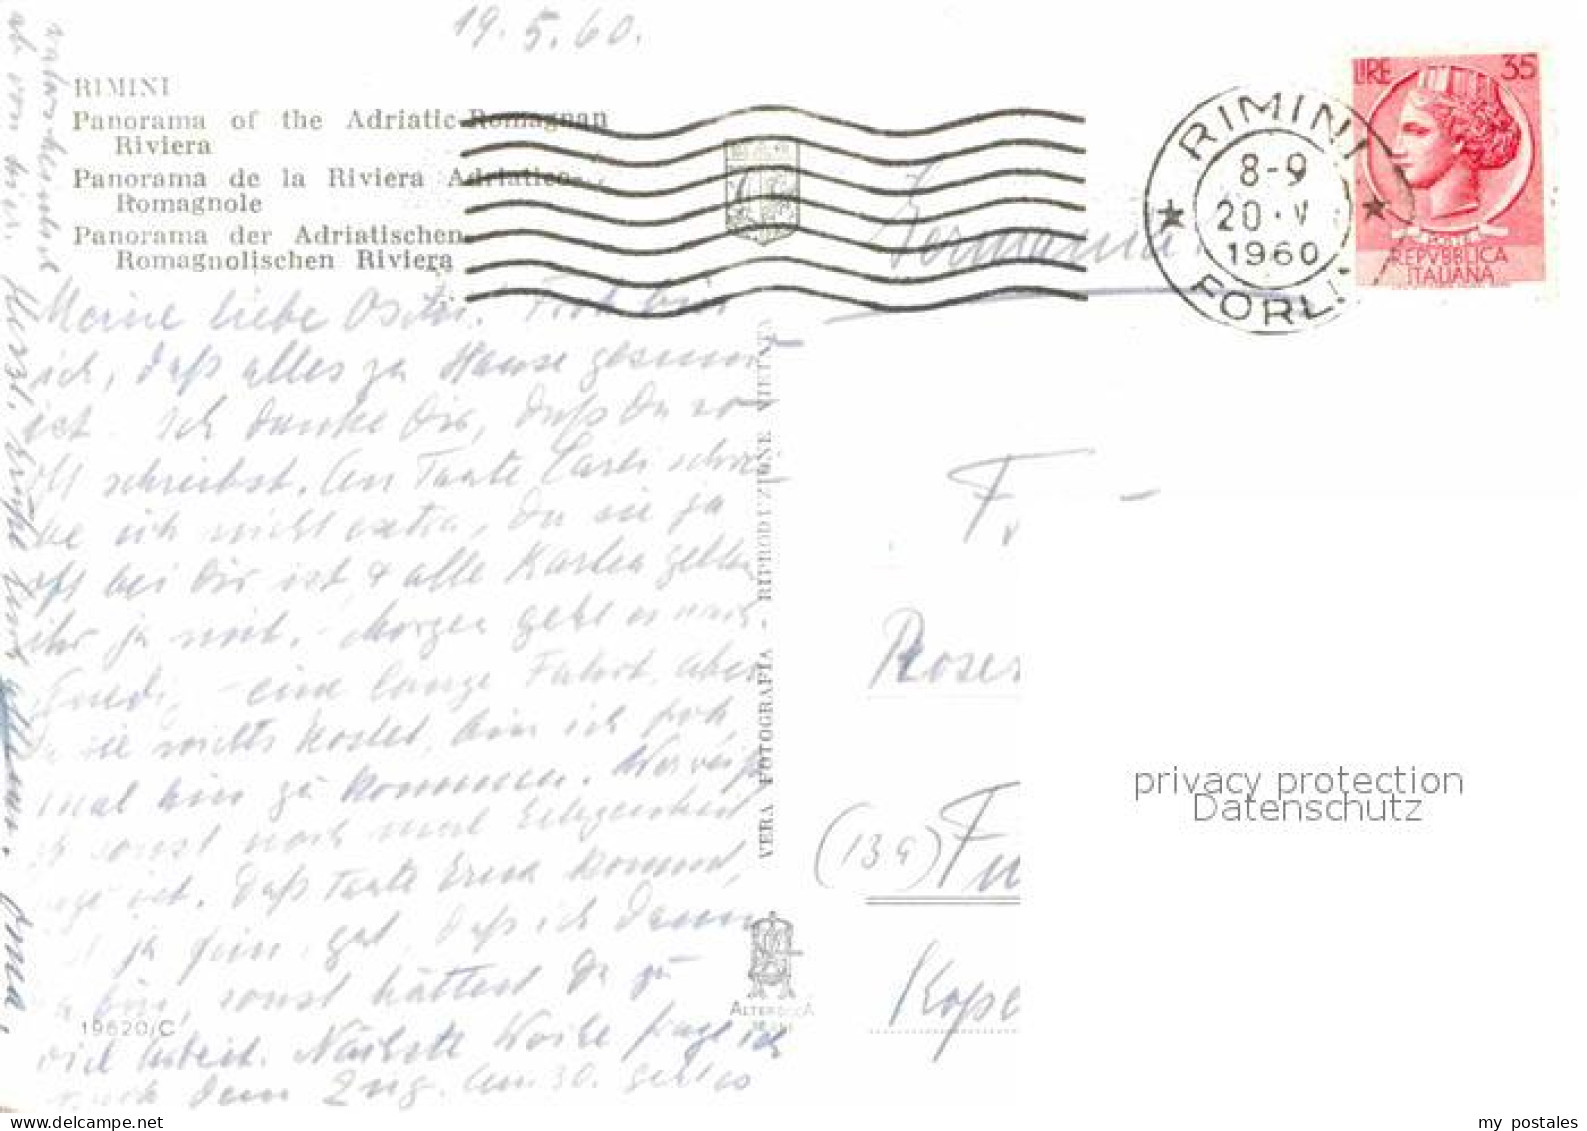 19.5.60.
RIMINI
Panorama of the Adriatic-Romagnan
Riviera
Panorama de la Riviera Adriatico-
Romagnole
Panorama der Adriatischen
Romagnolischen Riviera
LIRE 35
REPVBBLICA
ITALIANA
RIMINI
8-9
20·V
1960
FORLI
Germania
Meine liebe Froh bin
ich, daß alles zu Hause gesund
ist. Ich danke Dir, daß Du so
oft schreibst. An Tante schrei-
be ich nicht extra, da sie ja
oft bei Dir ist & alle Karten gelten
ihr ja mit. - Morgen geht es nach
- eine lange Fahrt, aber
da sie nichts kostet, bin ich froh
mal hin zu kommen. Wer weiß
ob sonst noch mal Gelegenheit
ist. Daß Tante Erna kommt,
ist ja fein, gut, daß ich dann
da bin, sonst hättest Du zu
viel Arbeit. Nächste Woche frage ich
nach dem Zug. Am 30. geht es
ab von hier. Herzl. Grüße Oma.
VERA FOTOGRAFIA - RIPRODUZIONE VIETATA
ALTEROCCA
19620/C
F. -
Rosen
(13a) Fu
Kope
privacy protection
Datenschutz
my postales